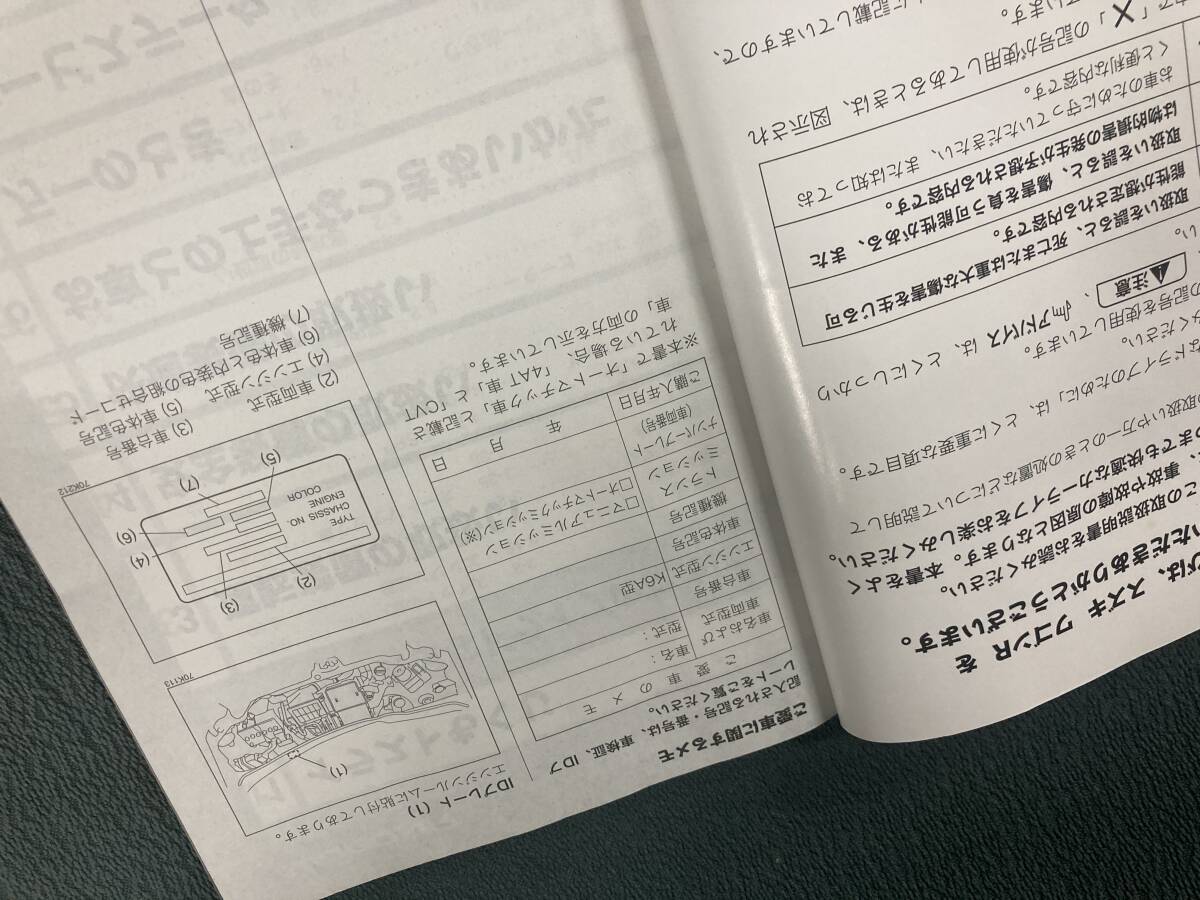 びは、スズキ ワゴンR を
いただきありがとうございます。
この取扱説明書をお読みください。
、事故や故障の原因となります。本書をよく
つまでも快適なカーライフをお楽しみください。
取扱いや万一のときの処置などについて説明して
なドライブのために」は、とくに重要な項目です。
みください。
の記号を使用しています。
注意 、 アドバイス は、とくにしっかり
い。
取扱いを誤ると、死亡または重大な傷害を生じる可
能性が想定される内容です。
取扱いを誤ると、傷害を負う可能性がある、また
は物的損害の発生が予想される内容です。
お車のために守っていただきたい、または知ってお
くと便利な内容です。
で「X」の記号が使用してあるときは、図示され
ています。
に記載していますので、
ご愛車に関するメモ
記入される記号・番号は、車検証、IDプ
レートをご覧ください。
ご 愛 車 の メ モ
車名および 車両型式
車名:
型式:
車台番号
エンジン型式 K6A型
車体色記号
機種記号
トランスミッション
□マニュアルミッション
□オートマチックミッション(※)
ナンバープレート
(車両番号)
ご購入年月日 年 月 日
※本書で「オートマチック車」と記載さ
れている場合、「4AT車」と「CVT
車」の両方を示しています。
IDプレート (1)
エンジンルームに貼付してあります。
(1)
70K113
(2)
(3)
(4)
(5)
(6)
(7)
TYPE
CHASSIS NO.
ENGINE
COLOR
70K212
(2) 車両型式 (3) 車台番号
(4) エンジン型式 (5) 車体色記号
(6) 車体色と内装色の組合せコード
(7) 機種記号